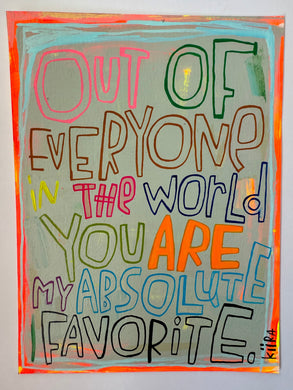 OUT OF
EVERYONE
in THE WORLD
YOU ARE
MY ABSOLUTE
FAVORITE.
KIIRA